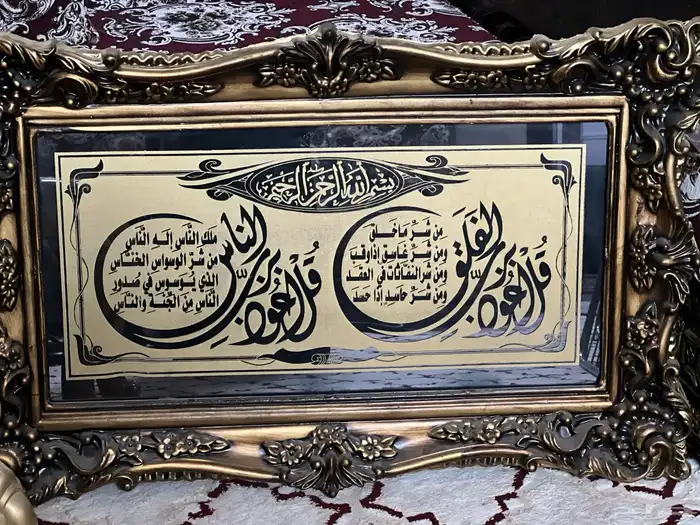 بسم الله الرحمن الرحيم
قل أعوذ برب الفلق
من شر ما خلق
ومن شر غاسق إذا وقب
ومن شر النفاثات في العقد
ومن شر حاسد إذا حسد
قل أعوذ برب الناس
ملك الناس إله الناس
من شر الوسواس الخناس
الذي يوسوس في صدور
الناس من الجنة والناس